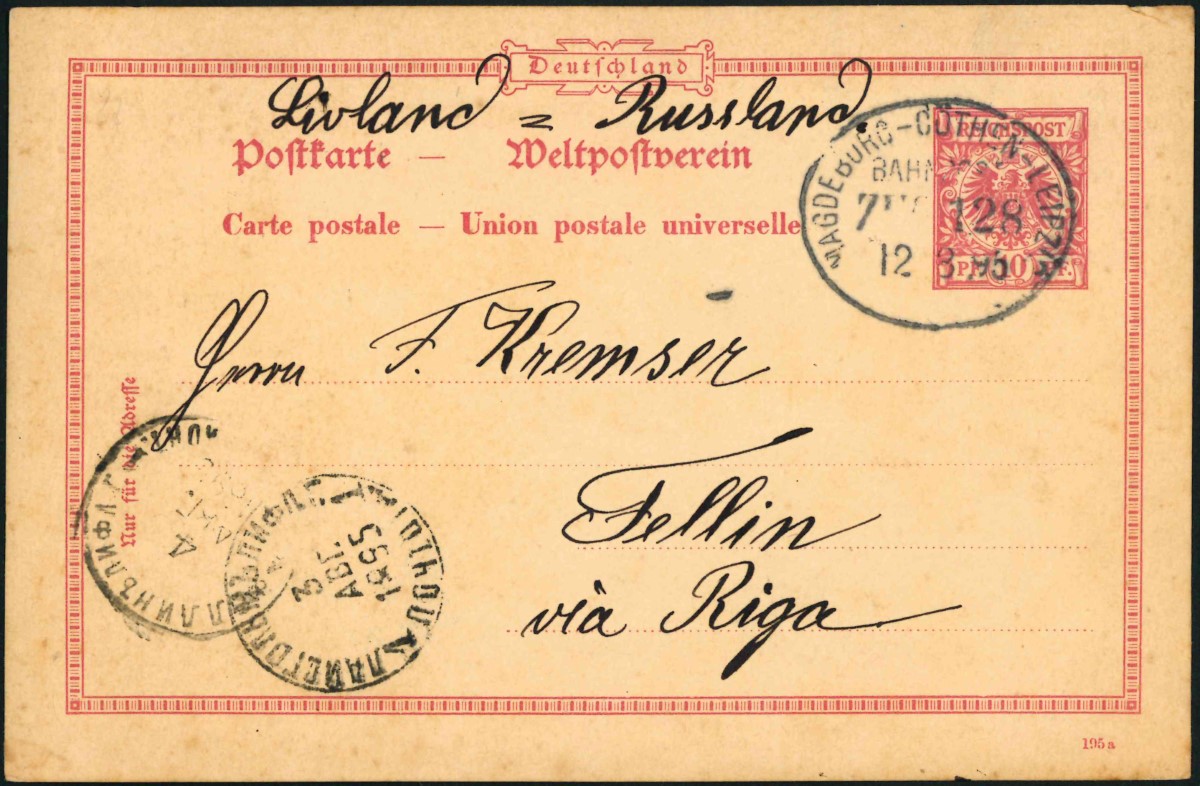 Deutschland
Livland = Russland.
Postkarte — Weltpostverein
Carte postale — Union postale universelle
REICHSPOST
10
MAGDEBURG-CÖTHEN-LEIPZIG
128
12 3 95
Herrn F. Kremser
Fellin
via Riga
Nur für die Adresse
4
3
АВГ.
1895
195 a